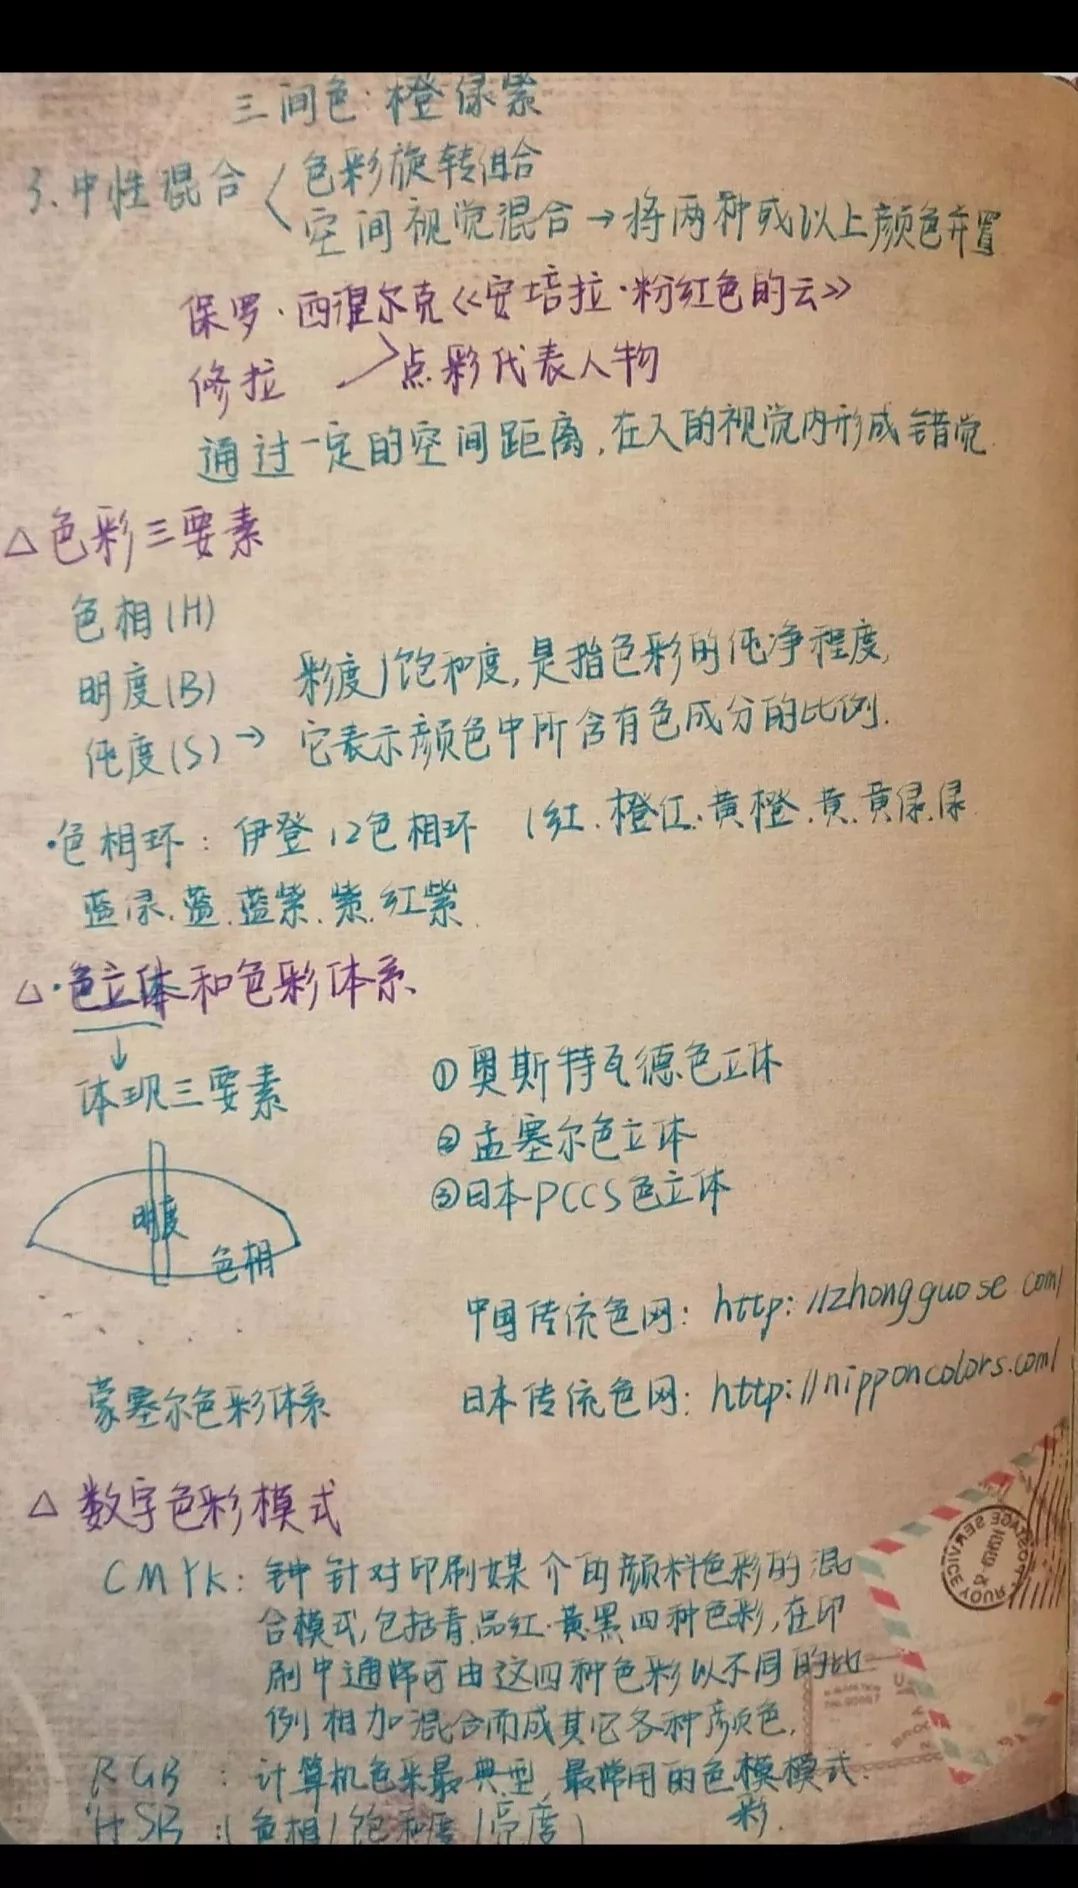 三间色:橙绿紫
3.中性混合 色彩旋转组合
空间视觉混合→将两种或以上颜色并置
保罗·西涅尔克《安培拉·粉红色的云》
修拉 点彩代表人物
通过一定的空间距离,在人的视觉内形成错觉.
△色彩三要素
色相(H)
明度(B) 彩度/饱和度,是指色彩的纯净程度,
纯度(S)→ 它表示颜色中所含有色成分的比例.
·色相环:伊登12色相环 (红.橙红.黄橙.黄.黄绿.绿
蓝绿.蓝.蓝紫.紫.红紫
△·色立体和色彩体系
↓
体现三要素
①奥斯特瓦德色立体
②孟塞尔色立体
③日本PCCS色立体
明度
色相
中国传统色网:http://zhongguose.com/
蒙塞尔色彩体系
日本传统色网:http://nipponcolors.com/
△数字色彩模式
CMYK:钟针对印刷媒介的颜料色彩的混
合模式,包括青.品红.黄黑四种色彩,在印
刷中通常可由这四种色彩以不同的比
例相加混合而成其它各种颜色.
RGB:计算机色采最典型,最常用的色模模式.
彩
HSB:(色相/饱和度/亮度)
POSTAGE SERVICE